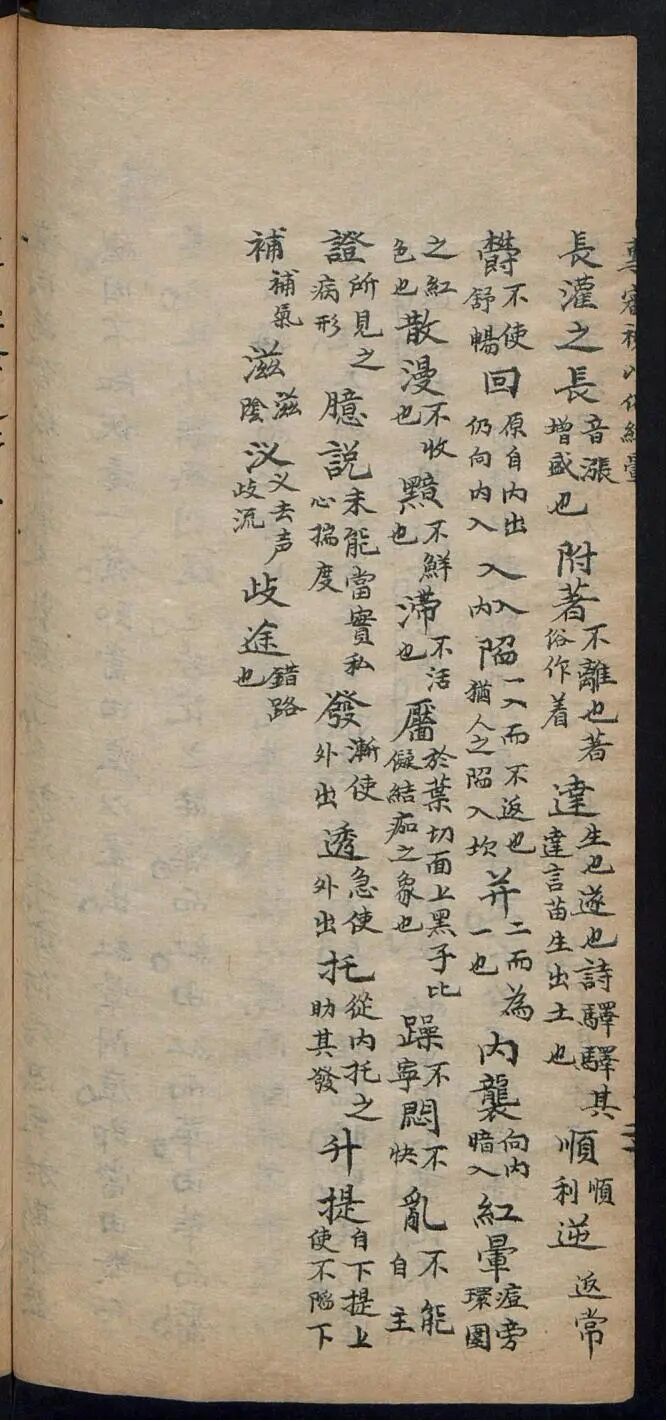 紅暈
長灌之長音漲增盛也附著不離也著俗作着達生也遂也詩驛驛其達言苗生出土也順順利逆返常
欝不使舒暢回原自內出仍向內入入入內陷一入而不返也猶人之陷入坎并二而為一也內襲向內暗入紅暈痘旁環圓
之紅色也散漫不收也黯不鮮也滯不活也黶於葉切面上黑子比儗結痂之象也躁不寧悶不快亂不能自主
證所見之病形臆說未能當實私心揣度發漸使外出透急使外出托從內托之助其發升提自下提上使不陷下
補補氣滋滋陰汊义去声歧流歧途錯路也